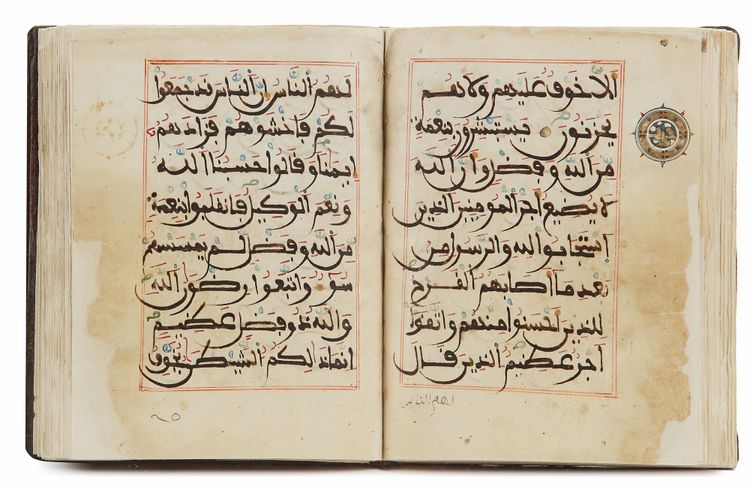 ألا خوف عليهم ولا هم
يحزنون يستبشرون بنعمة
من الله وفضل وأن الله
لا يضيع أجر المومنين الذين
استجابوا لله والرسول من
بعد ما أصابهم القرح
للذين أحسنوا منهم واتقوا
أجر عظيم الذين قال
لهم الناس إن الناس قد جمعوا
لكم فاخشوهم فزادهم
إيمنا وقالوا حسبنا الله
ونعم الوكيل فانقلبوا بنعمة
من الله وفضل لم يمسسهم
سوء واتبعوا رضون الله
والله ذو فضل عظيم
إنما ذلكم الشيطن يخوف